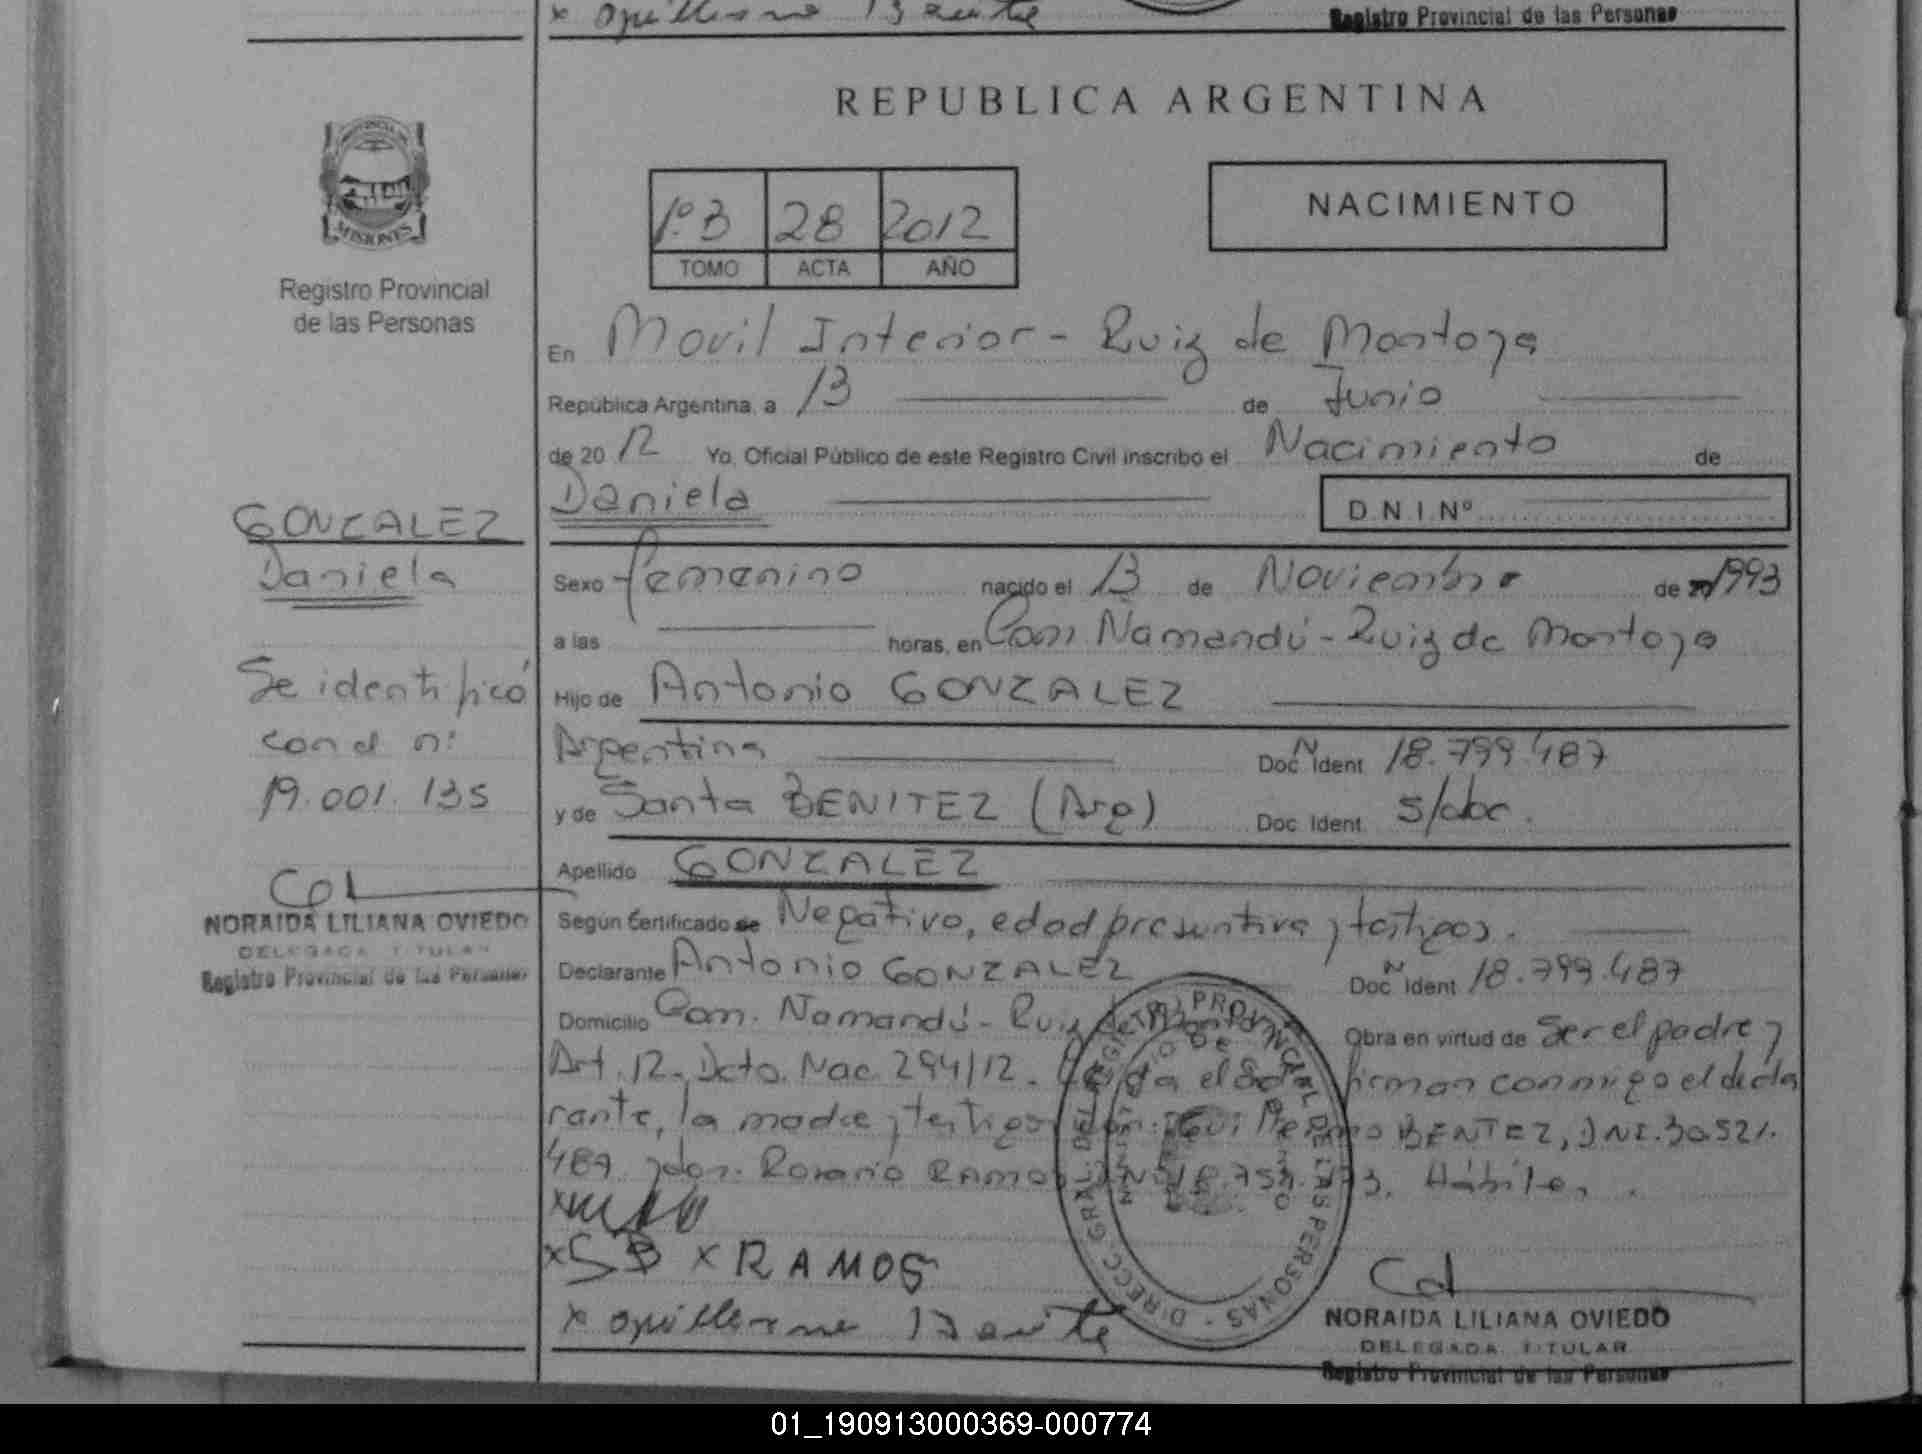 x Guillermo Benite
Registro Provincial de las Personas
REPUBLICA ARGENTINA
PROVINCIA DE
MISIONES
Registro Provincial
de las Personas
1º.B 28 2012
TOMO ACTA AÑO
NACIMIENTO
En Movil Interior - Ruiz de Montoya
República Argentina, a 13 de Junio
de 2012 Yo, Oficial Público de este Registro Civil inscribo el Nacimiento de
Daniela
D.N.I.Nº
GONZALEZ
Daniela
Se identificó
con el nº
19.001.135
NORAIDA LILIANA OVIEDO
DELEGADA TITULAR
Registro Provincial de las Personas
Sexo femenino nacido el 13 de Noviembre de 1993
a las horas, en Com. Ñamandú - Ruiz de Montoya
Hijo de Antonio GONZALEZ
Argentina Doc. N Ident 18.799.487
y de Santa BENITEZ (Arg) Doc. Ident. S/doc.
Apellido GONZALEZ
Según Certificado de Negativo, edad presuntiva y testigos.
Declarante Antonio GONZALEZ Doc. N Ident 18.799.487
Domicilio Com. Ñamandú - Ruiz de Montoya Obra en virtud de ser el padre y
Art. 12. Dcto. Nac. 294/12. el firman conmigo el decla
rante, la madre y testigos don: Guillermo BENITEZ, DNI.30.521.
487 y don: Rosario RAMOS Hábiles.
x SB x RAMOS
x Guillermo Benite
DIRECC. GRAL. DEL REGISTRO PROVINCIAL DE LAS PERSONAS
NORAIDA LILIANA OVIEDO
DELEGADA TITULAR
Registro Provincial de las Personas
01_190913000369-000774